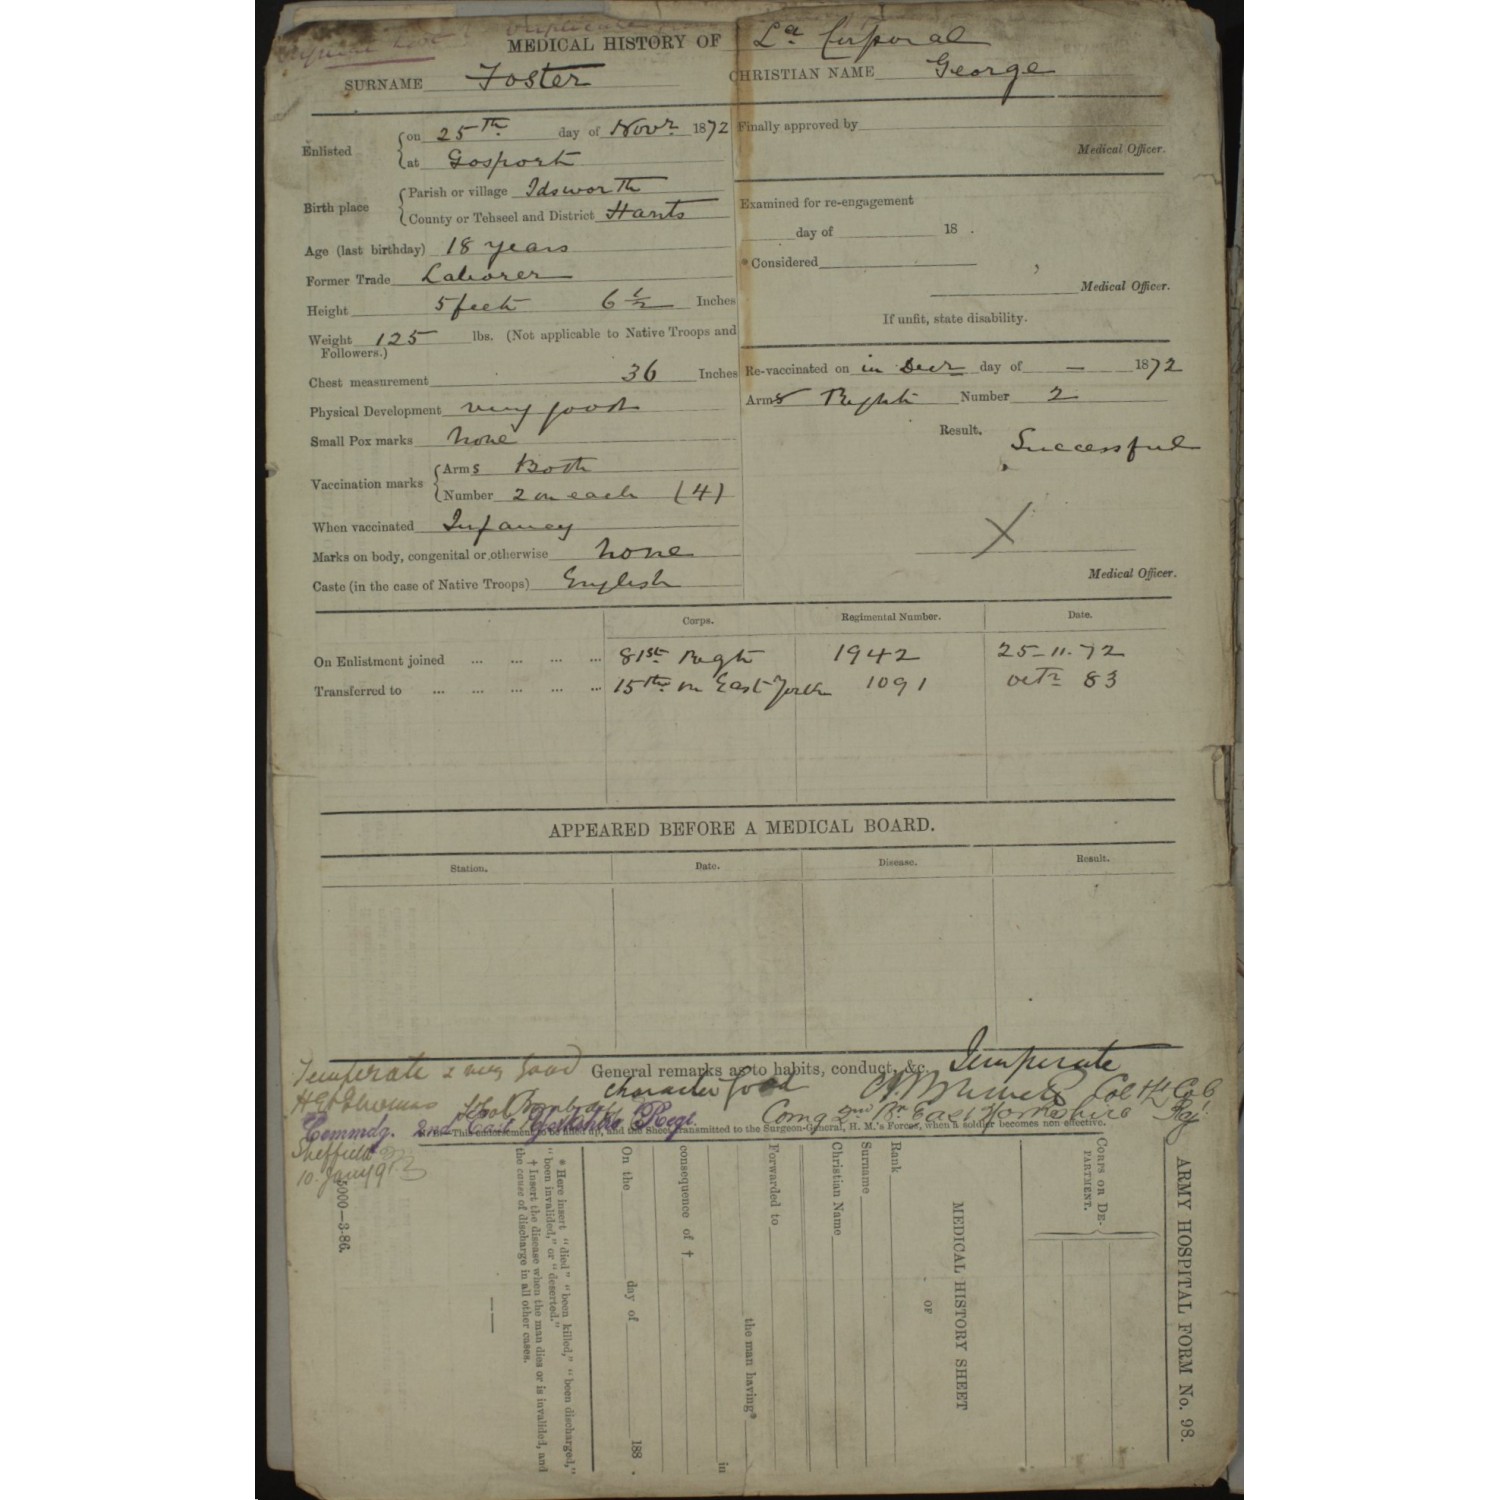 MEDICAL HISTORY OF Lce. Corporal
SURNAME Foster CHRISTIAN NAME George
Enlisted on 25th day of Novr 1872
at Gosport
Birth place Parish or village Idsworth
County or Tehseel and District Hants
Age (last birthday) 18 years
Former Trade Laborer
Height 5 feet 6 1/2 Inches
Weight 125 lbs. (Not applicable to Native Troops and
Followers.)
Chest measurement 36 Inches
Physical Development very good
Small Pox marks none
Vaccination marks Arms Both
Number 2 on each (4)
When vaccinated Infancy
Marks on body, congenital or otherwise none
Caste (in the case of Native Troops) English
Finally approved by
Medical Officer.
Examined for re-engagement
day of 18 .
* Considered
Medical Officer.
If unfit, state disability.
Re-vaccinated on in Decr day of — 1872
Arms Right Number 2
Result. Successful
Medical Officer.
Corps. Regimental Number. Date.
On Enlistment joined ... ... ... ... 81st Regt 1942 25-11-72
Transferred to ... ... ... ... ... 15th or East York 1091 Octr 83
APPEARED BEFORE A MEDICAL BOARD.
Station. Date. Disease. Result.
General remarks as to habits, conduct, &c. Temperate
Temperate & very good
character good
Comg 2nd Bn East Yorkshire Reg
Commdg. 2nd East Yorkshire Regt.
Note—This endorsement to be filled up, and the Sheet transmitted to the Surgeon-General, H. M.'s Forces, when a soldier becomes non-effective.
Sheffield
10. Jany 9
5000—3-86.
ARMY HOSPITAL FORM No. 98.
CORPS OR DE-
PARTMENT.
MEDICAL HISTORY SHEET
OF
Rank
Surname
Christian Name
Forwarded to
the man having* in
consequence of †
On the day of 188 .
* Here insert "died" "been killed," "been discharged,"
"been invalided," or "deserted."
† Insert the disease when the man dies or is invalided, and
the cause of discharge in all other cases.